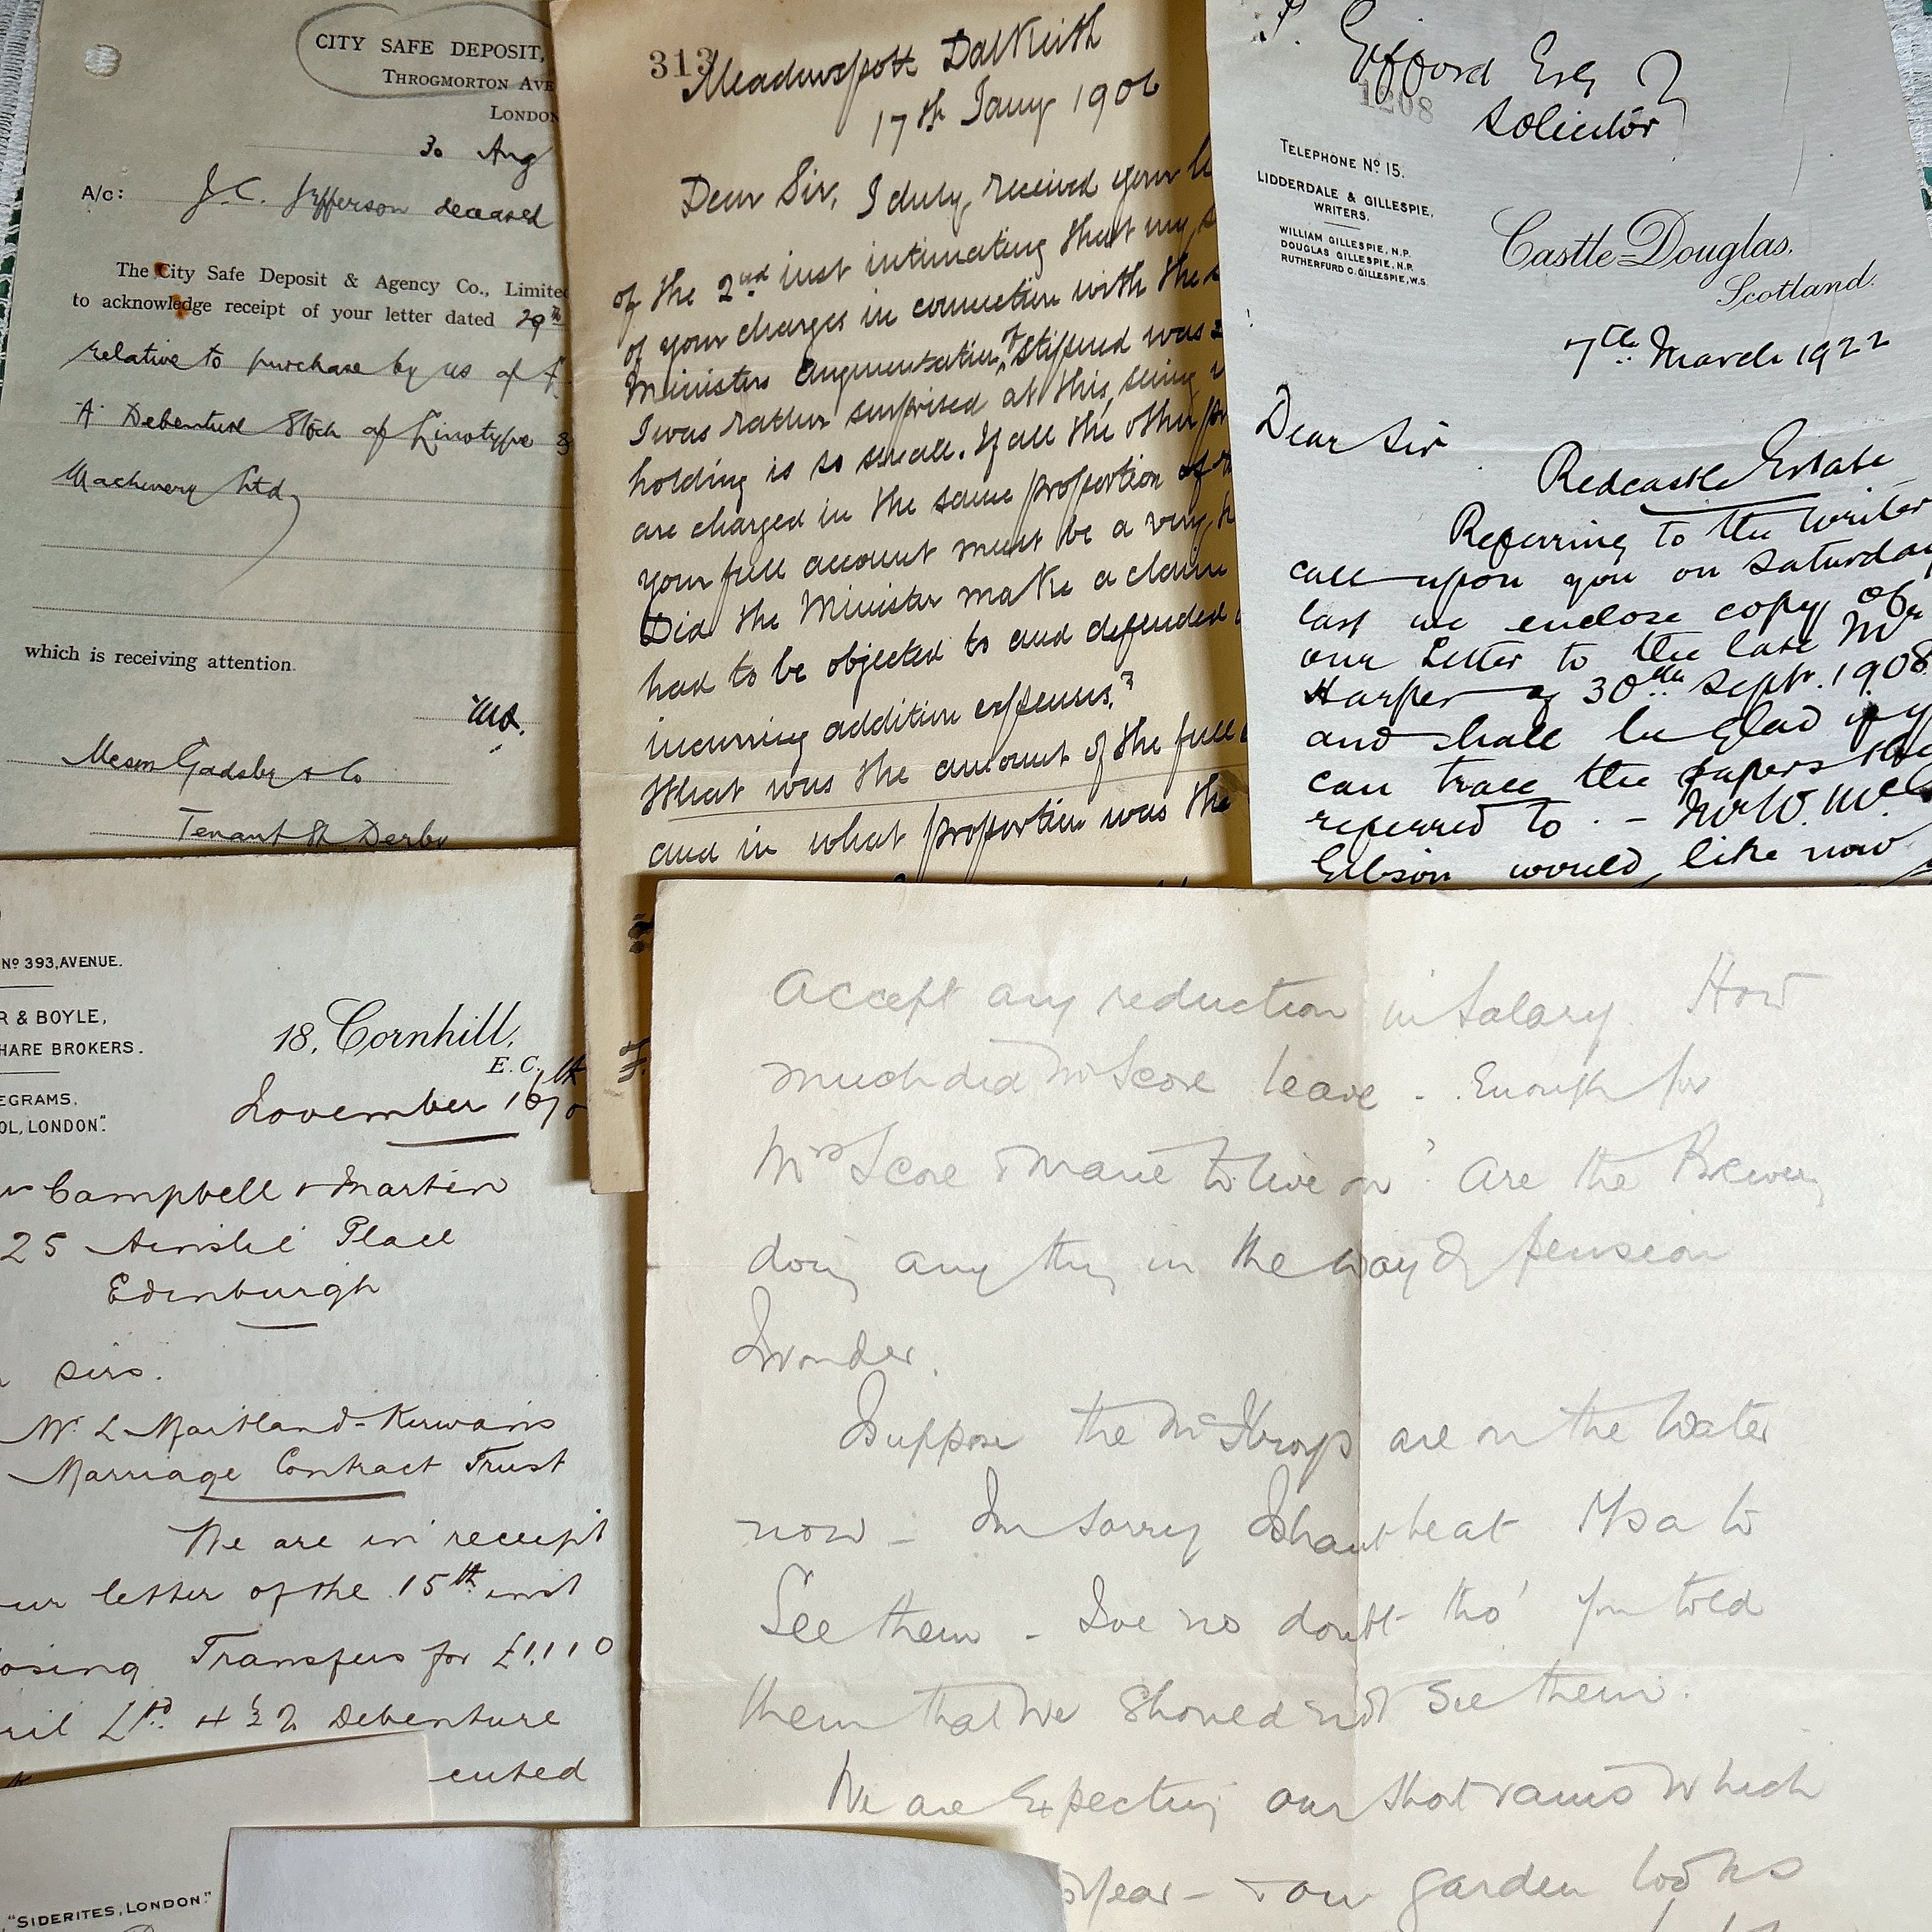 CITY SAFE DEPOSIT,
THROGMORTON AVE
LONDON
30 Aug
A/c: J. C. Jefferson deceased
The City Safe Deposit & Agency Co., Limited
to acknowledge receipt of your letter dated 29th
relative to purchase by us of £
"A" Debenture Stock of Linotype &
Machinery Ltd
which is receiving attention.
Messrs Gadsby & Co
Tenant St. Derby
313
Meadowspott Dalkeith
17th Jany 1906
Dear Sir, I duly received your
of the 2nd inst intimating that my
of your charges in connection with the
Ministers augmentation of stipend was
I was rather surprised at this, seing
holding is so small. If all the other
are charged in the same proportion of
your full account must be a very
Did the Minister make a claim
had to be objected to and defended
incurring addition expenses?
What was the amount of the full
and in what proportion was the
Gifford Esq
1208
Solicitor
TELEPHONE No 15.
LIDDERDALE & GILLESPIE,
WRITERS.
WILLIAM GILLESPIE, N.P.
DOUGLAS GILLESPIE, N.P.
RUTHERFURD C. GILLESPIE, W.S.
Castle-Douglas,
Scotland.
7th March 1922
Dear Sir
Redcastle Estate
Referring to the writer
call upon you on Saturday
last we enclose copy of
our Letter to the late Mr
Harper of 30th Sept. 1908
and shall be glad if
can trace the papers
referred to. - Mr W. McC
Gibson would like now
No 393, AVENUE.
R & BOYLE,
HARE BROKERS.
EGRAMS,
OL, LONDON".
18, Cornhill,
E.C.
November 16th
Campbell & Martin
25 Ainslie Place
Edinburgh
Sirs.
Mr L Maitland-Kirwan's
Marriage Contract Trust
We are in receipt
ur letter of the 15th inst
osing Transfers for £1,110
ril Ltd 4½% Debenture
cuted
"SIDERITES, LONDON."
accept any reduction in Salary. How
much did Mr Score leave - Enough for
Mrs Score & Marie to live on? Are the Brewery
doing any thing in the way of pension
I wonder.
I suppose the are on the Water
now - I'm sorry I shant be at to
See them - I've no doubt tho' you told
them that we should not see them.
We are Expecting our which
year - & our garden looks